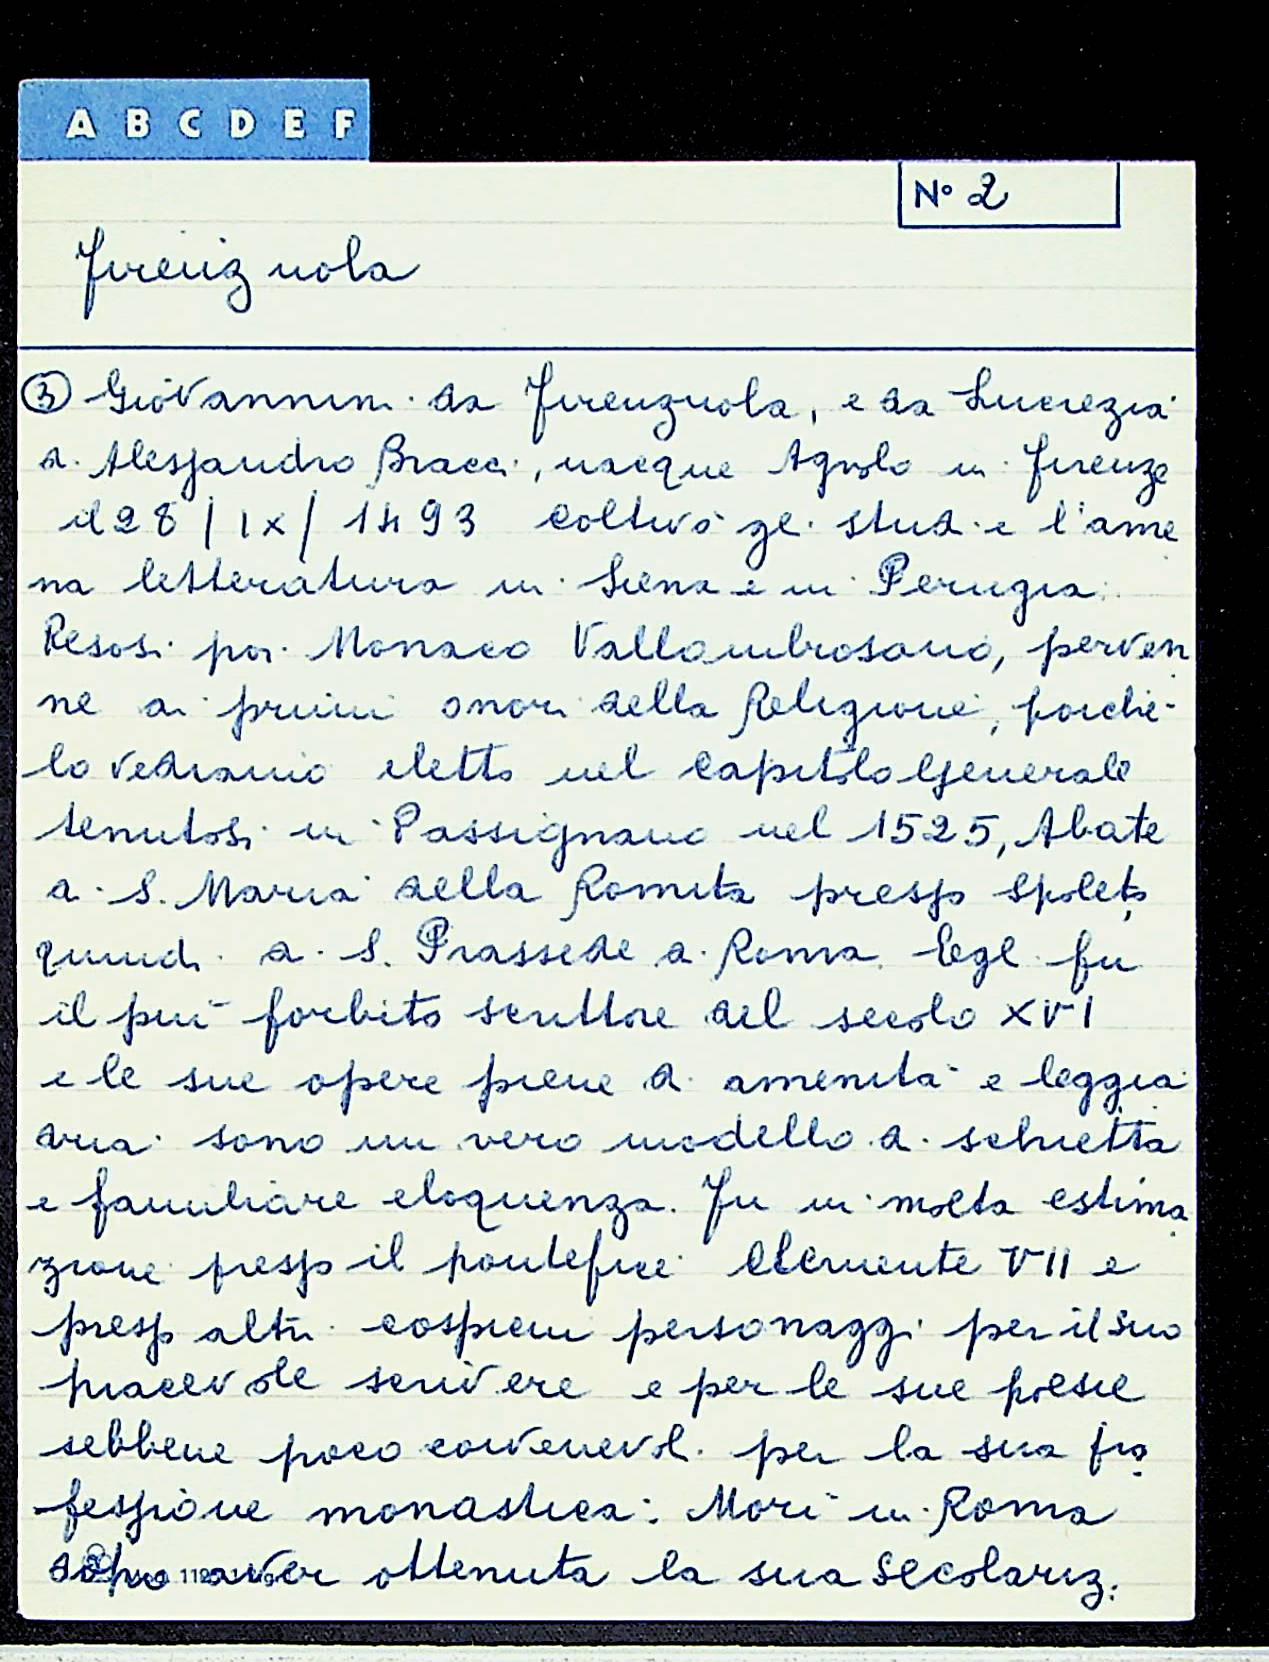 A B C D E F
Nº 2
Firenzuola
③ Giovannini da Firenzuola, e da Lucrezia
di Alessandro Bracci, nacque Agnolo in Firenze
il 28 / IX / 1493 coltivò gli studi e l'ame
na letteratura in Siena e in Perugia.
Resosi poi Monaco Vallombrosano, perven
ne ai primi onori della Religione, poichè
lo vediamo eletto nel Capitolo Generale
tenutosi in Passignano nel 1525, Abate
di S. Maria della Romita presso Spoleto,
quindi di S. Prassede di Roma. Egli fu
il più forbito scrittore del secolo XVI
e le sue opere piene di amenità e leggia
dria sono un vero modello di schietta
e familiare eloquenza. Fu in molta estima
zione presso il pontefice Clemente VII e
presso altri cospicui personaggi per il suo
piacevole scrivere e per le sue poesie
sebbene poco convenevoli per la sua pro
fessione monastica. Morì in Roma
dopo aver ottenuta la sua secolariz.